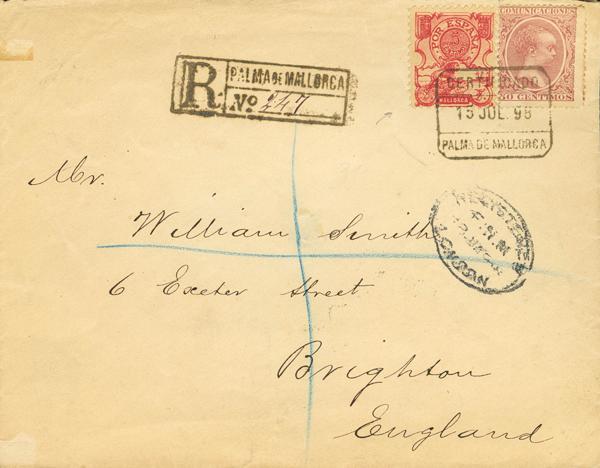 POR ESPAÑA
MALLORCA
COMUNICACIONES
50 CENTIMOS
R
PALMA DE MALLORCA
No 247
CERTIFICADO
15 JUL. 98
PALMA DE MALLORCA
REGISTERED
LONDON
Mr.
William Smith
6 Exeter Street
Brighton
England